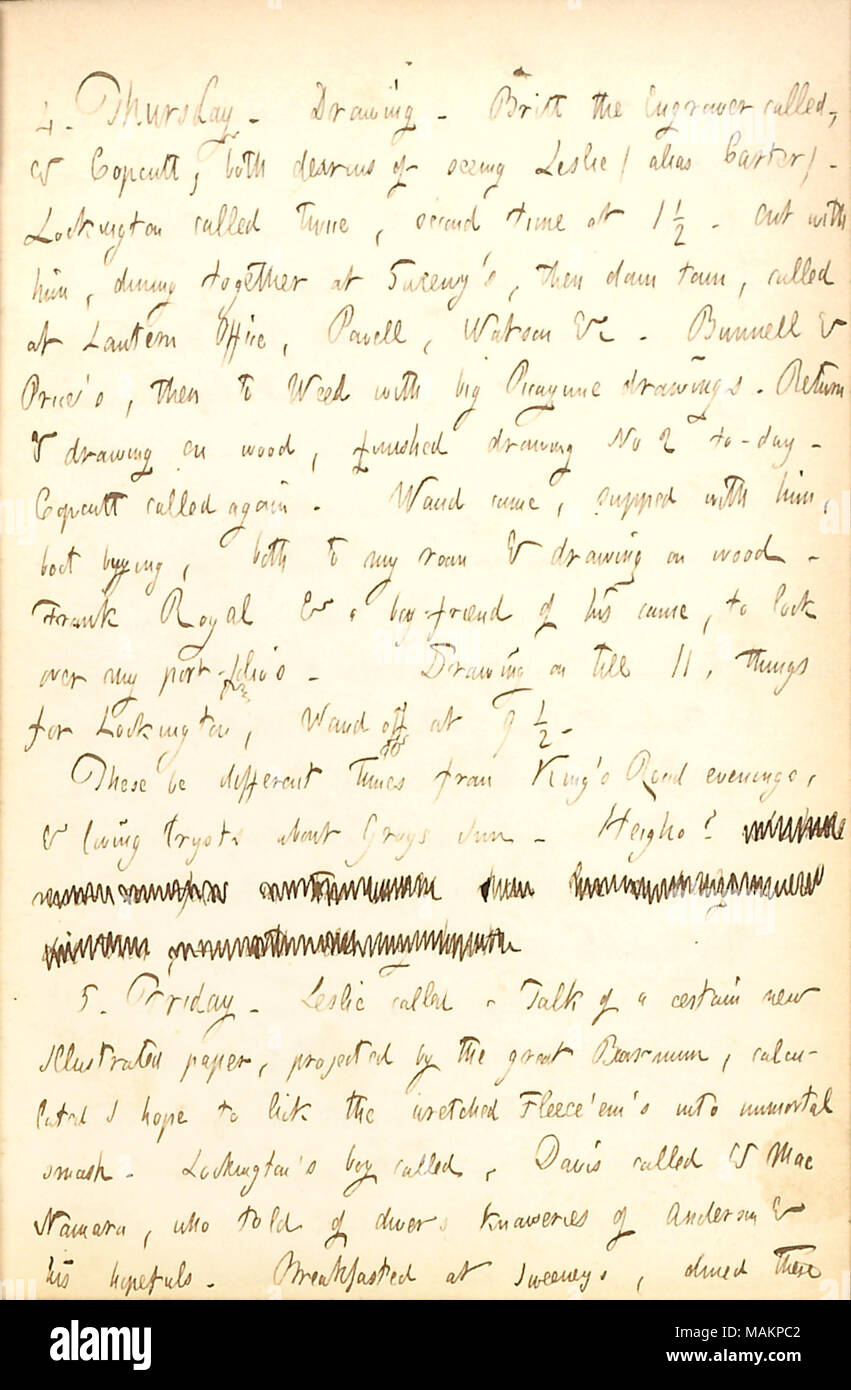 4. Thursday. Drawing. Britt the Engraver called,
& Copcutt, both desirous of seeing Leslie (alias Carter).
Lockington called twice, second time at 1 ½. Out with
him, dining together at Sweeny's, then down town, called
at Lantern Office, Powell, Watson &c. Bunnell &
Price's, then to Weed with big Picayune drawings. Return
& drawing on wood, finished drawing No 2 to-day.
Copcutt called again. Waud came, supped with him,
boot buying, both to my room & drawing on wood.
Frank Royal & a boy-friend of his came, to look
over my port-folio's. Drawing on till 11, things
for Lockington, Waud off at 9 ½.
These be different times from King's Road evenings,
& loving trysts about Grays Inn. Heigho!
5. Friday. Leslie called. Talk of a certain new
Illustrated paper, projected by the great Barnum, calcu-
lated I hope to lick the wretched Fleece'em's into immortal
smash. Lockington's boy called, Davis called & Mac
Namara, who told of divers knaveries of Anderson &
his hopefuls. Breakfasted at Sweeneys, dined there
alamy
Image ID: MAKPC2
www.alamy.com